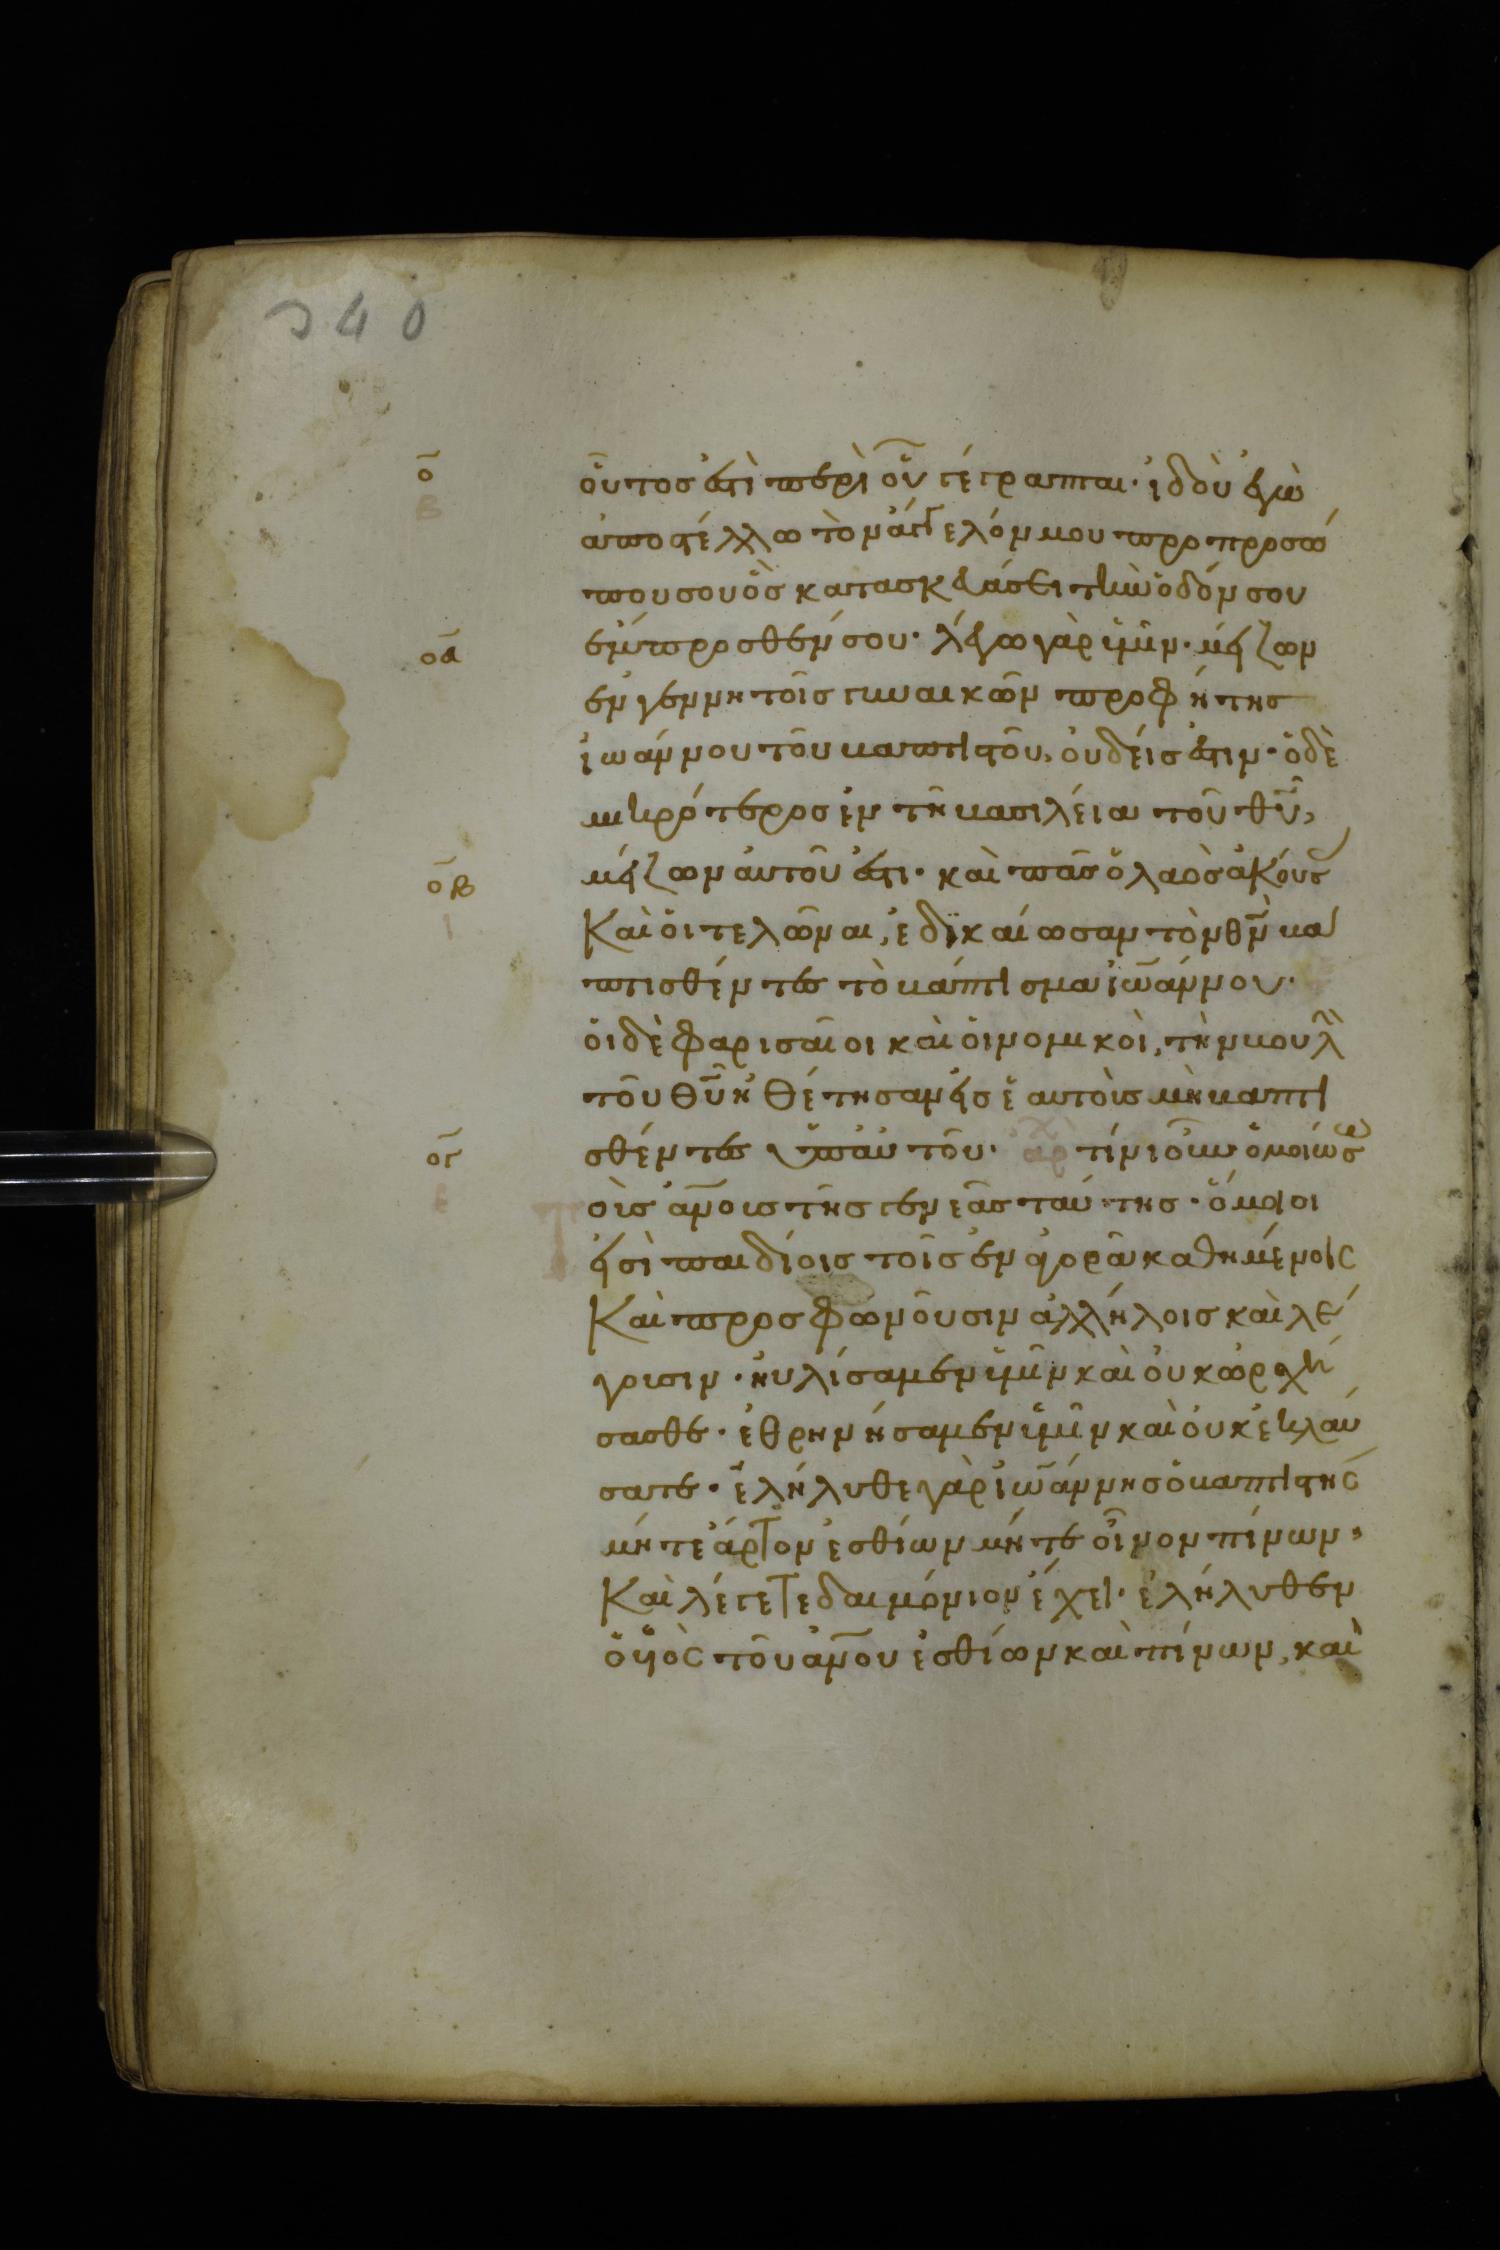 340
ο̄ οὗτοσ ἐστὶ περὶ οὗ γέγραπται· ἰδοὺ ἐγὼ
β ἀποστέλλω τὸν ἄγγελόν μου προ προσώ
που σου ὃσ κατασκευάσει τὴν ὁδόν σου
ο̄α ἔμπροσθέν σου· λέγω γὰρ ὑμῖν· μείζων
ἐν γεννητοῖσ γυναικῶν προφήτησ
ἰωάννου τοῦ βαπτιστοῦ, οὐδείσ ἐστιν· ὁ δὲ
μικρότεροσ ἐν τῆ βασιλεία τοῦ θ̅υ̅,
ο̄β μείζων ἀυτοῦ ἐστι· καὶ πᾶσ ὁ λαὸσ ἀκούσ
ι Καὶ ὁι τελῶναι, ἐδικαίωσαν τὸν θ̅ν̅ βα
πτισθέντεσ τὸ βάπτισμα ἰω̅άννου·
ὁι δὲ φαρισαῖοι καὶ ὁι νομικοὶ, τὴν βουλὴ
τοῦ θ̅υ̅ ἠθέτησαν εἰσ ἑαυτοὺσ μὴ βαπτι
ο̄γ σθέντεσ ὑπ' ἀυτοῦ· ἀρχ τίνι οὖν ὁμοιώσω τ
ε οὺσ ἀν̅ουσ τῆσ γενεᾶσ ταύτησ· ὅμοιοι
εἰσὶ παιδίοισ τοῖσ ἐν ἀγορᾶ καθημένοισ
Καὶ προσφωνοῦσιν ἀλλήλοισ καὶ λέ
γουσιν· ηὐλίσαμεν ὑμῖν καὶ ὀυκ ὠρχή
σασθε· ἐθρηνήσαμεν ὑμῖν καὶ ὀυκ ἐκλαύ
σατε· ἐλήλυθε γὰρ ἰω̅άννησ ὁ βαπτιστήσ
μήτε ἄρτον ἐσθίων μήτε οἶνον πίνων,
Καὶ λέγετε δαιμόνιον ἔχει· ἐλήλυθεν
ὁ υἱὸσ τοῦ ἀν̅ου ἐσθίων καὶ πίνων, καὶ